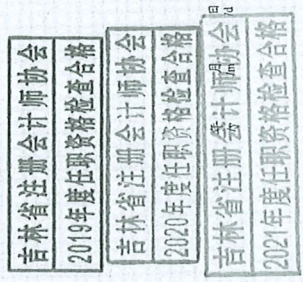 吉林省注册会计师协会
2019年度任职资格检查合格
吉林省注册会计师协会
2020年度任职资格检查合格
吉林省注册会计师协会
2021年度任职资格检查合格
日
/d
月
/m